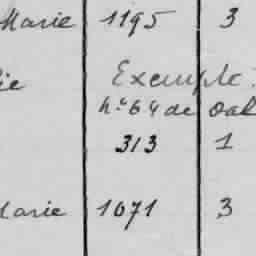 Marie 1195 3
Exemple
n° 64 de
313 1
Marie 1071 3